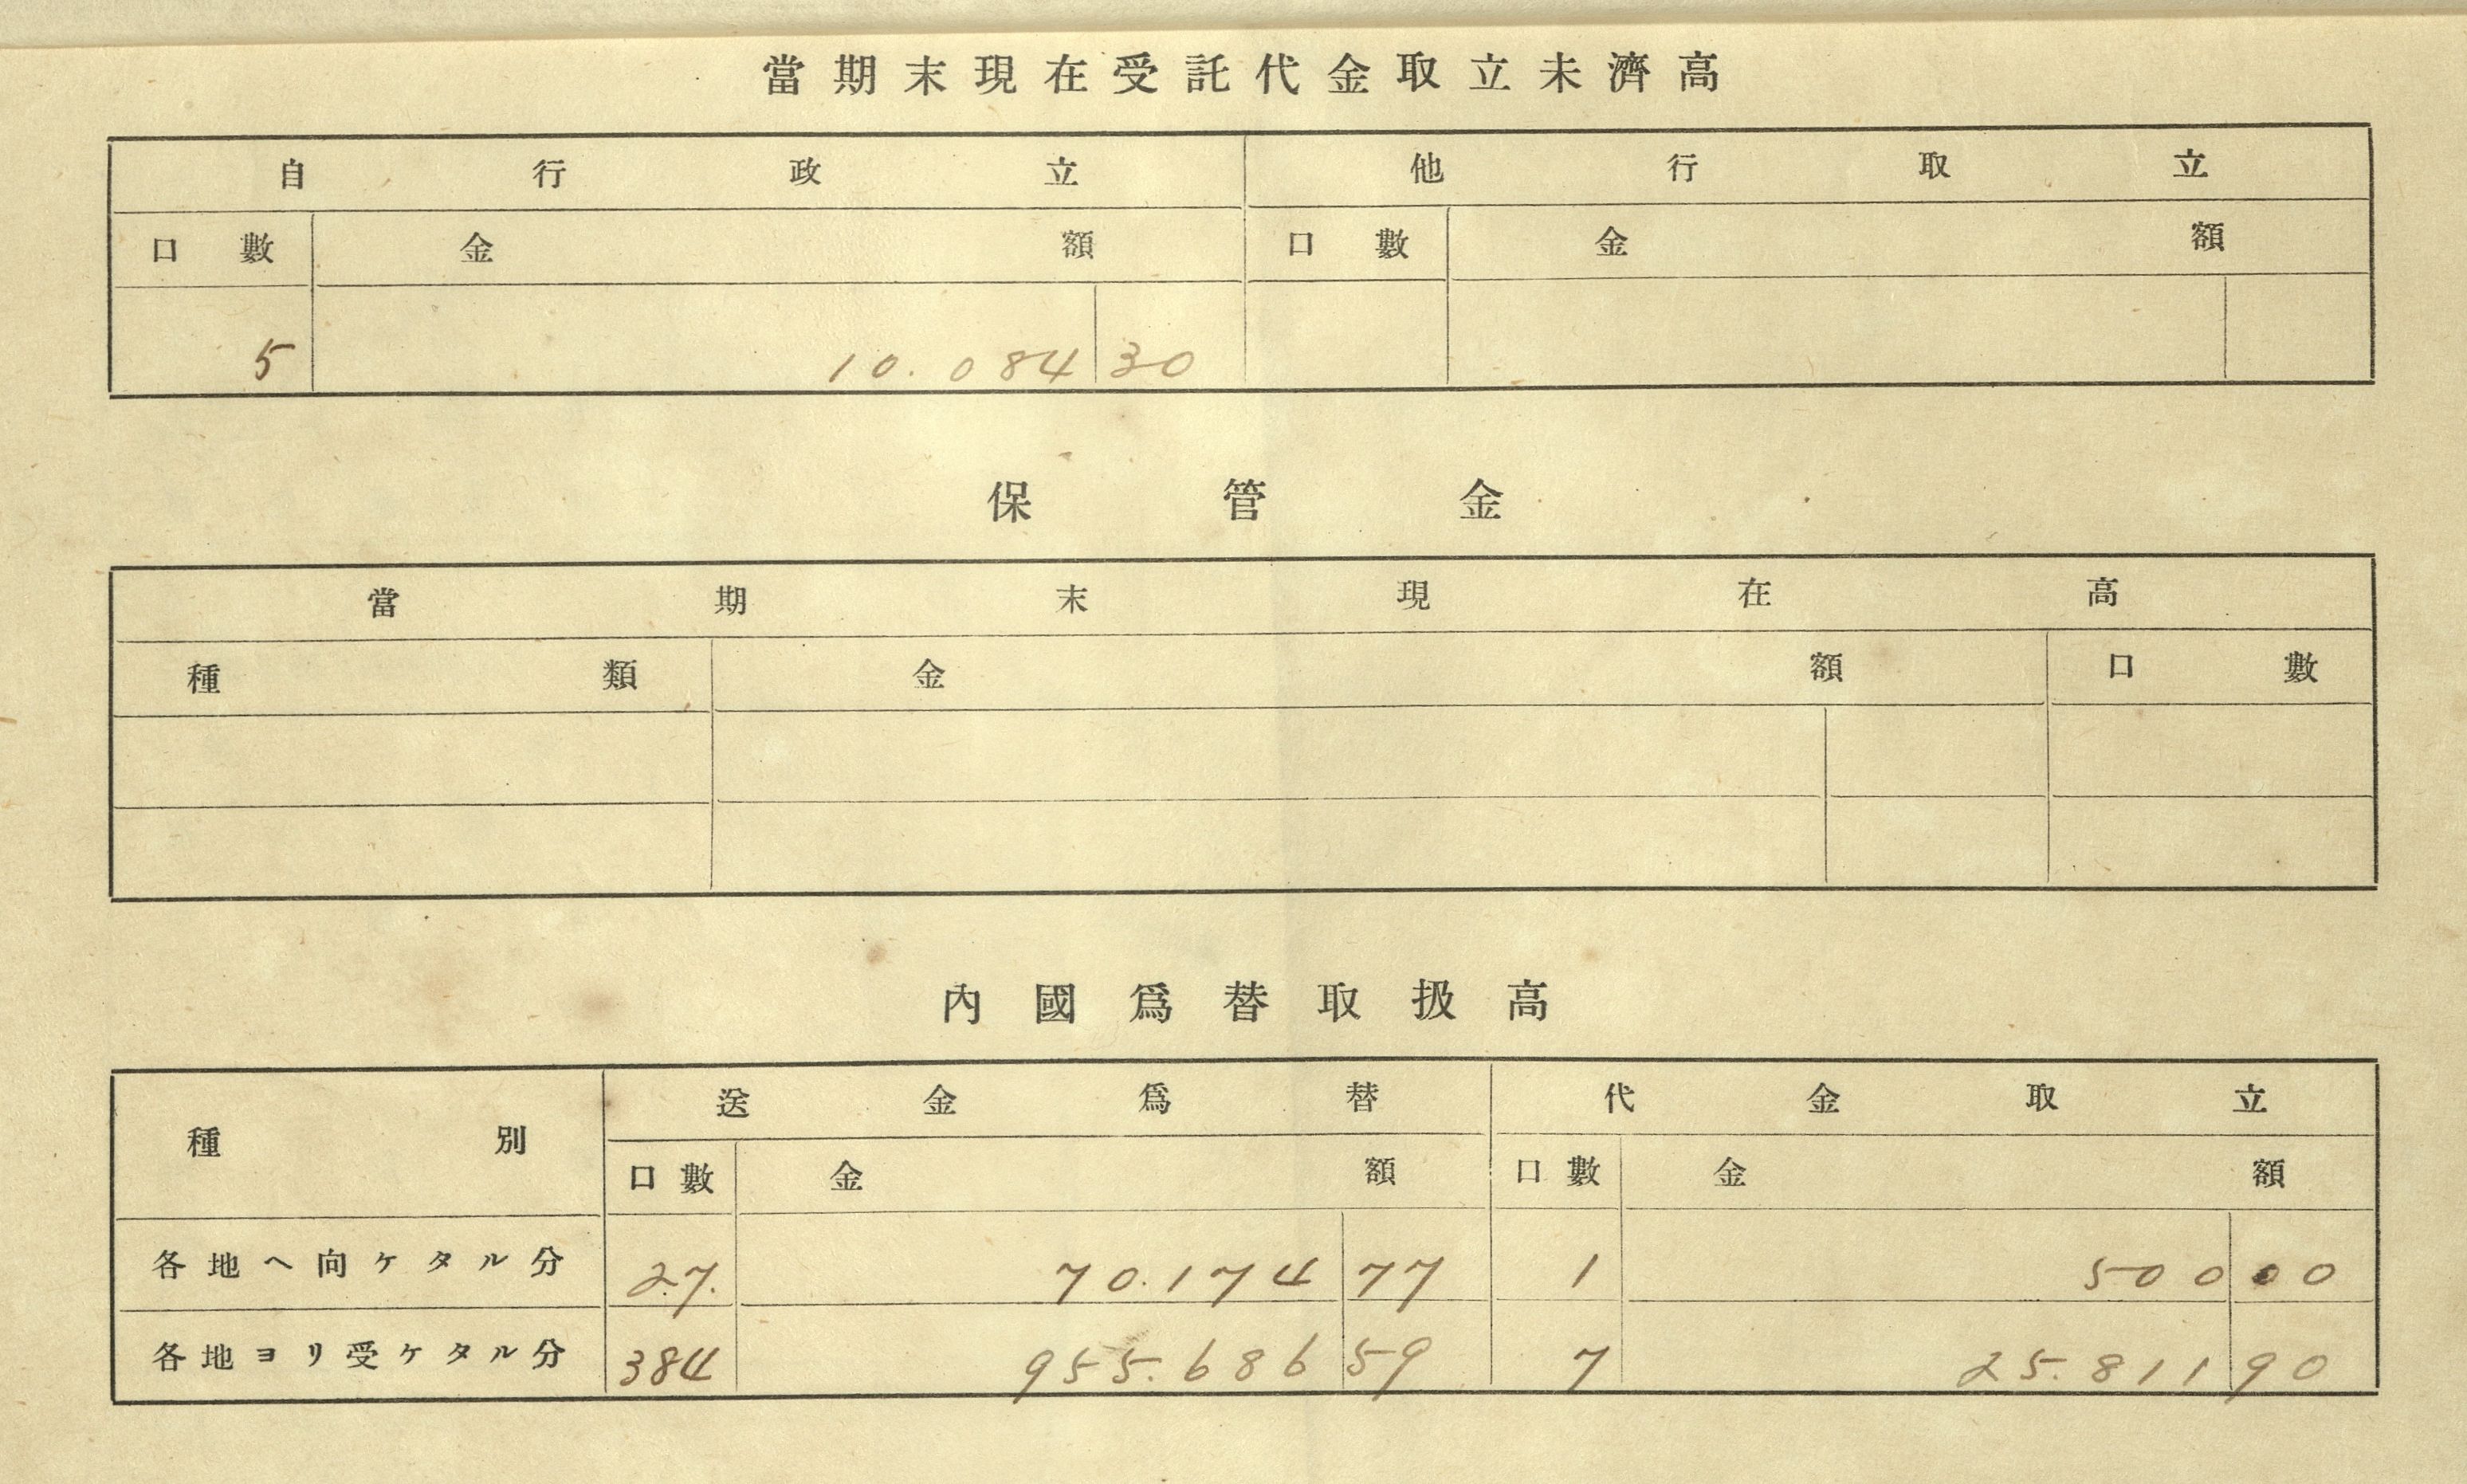 當期末現在受託代金取立未濟高
自行政立 他行取立
口數 金額 口數 金額
5 10.084 30
保管金
當期末現在高
種類 金額 口數
內國爲替取扱高
種別 送金爲替 代金取立
口數 金額 口數 金額
各地ヘ向ケタル分 27. 70.174 77 1 500 00
各地ヨリ受ケタル分 384 955.686 59 7 25.811 90